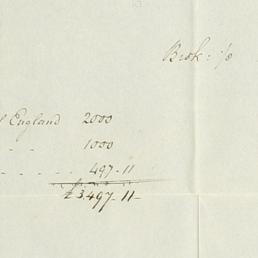 Brok: 1/8
England 2000
- - 1000
- - - - 497-11
£3497-11-